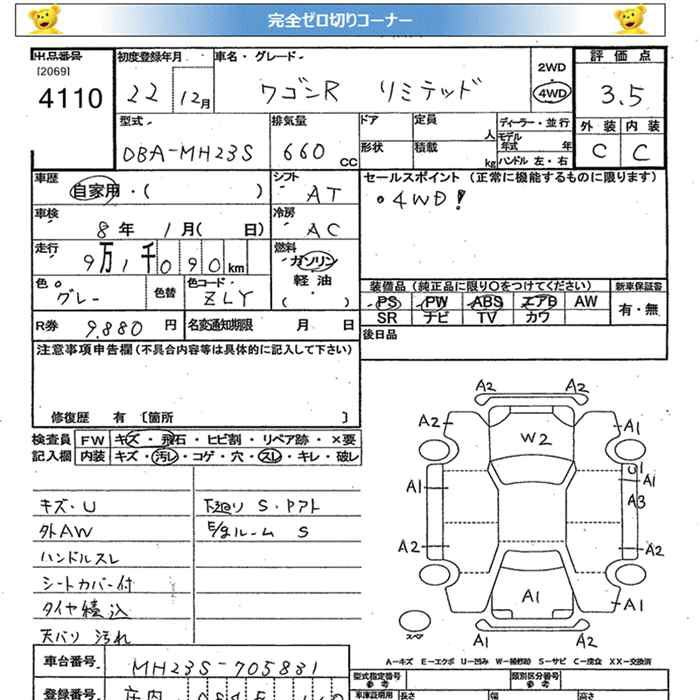 完全ゼロ切りコーナー
出品番号
[2069]
4110
初度登録年月
22 12月
車名・グレード
ワゴンR リミテッド
2WD
4WD
評価点
3.5
型式
DBA-MH23S
排気量
660 CC
ドア
形状
定員 人
積載 kg
ディーラー・並行
モデル年式 年
ハンドル 左・右
外装 内装
C C
車歴
自家用・( )
シフト
AT
セールスポイント (正常に機能するものに限ります)
・4WD!
車検
8年 1月( 日)
冷房
AC
走行
9万1千090km
燃料
ガソリン
軽油
( )
色
グレー
色替
色コード
ZLY
装備品 (純正品に限り○をつけてください)
新車保証書
PS PW ABS エアB AW
有・無
SR ナビ TV カワ
R券 9.880 円
名変通知期限 月 日
後日品
注意事項申告欄 (不具合内容等は具体的に記入して下さい)
修復歴 有 〔箇所 〕
検査員 FW キズ・飛石・ヒビ割・リペア跡・×要
記入欄 内装 キズ・汚レ・コゲ・穴・スレ・キレ・破レ
キズ・U
外AW
ハンドルスレ
シートカバー付
タイヤ積込
天バリ 汚れ
下廻り S・Pアト
E/gルーム S
A2 A2
A2 A1
W2
U1
A1 A1
A3
A2 A2
A1
A1
スペア
A2 A2
A-キズ E-エクボ U-凹み W-補修跡 S-サビ C-腐食 XX-交換済
車台番号
MH23S-705831
登録番号
庄内
型式指定番号
参考
類別区分番号
参考
車庫証明用
長さ 幅 高さ